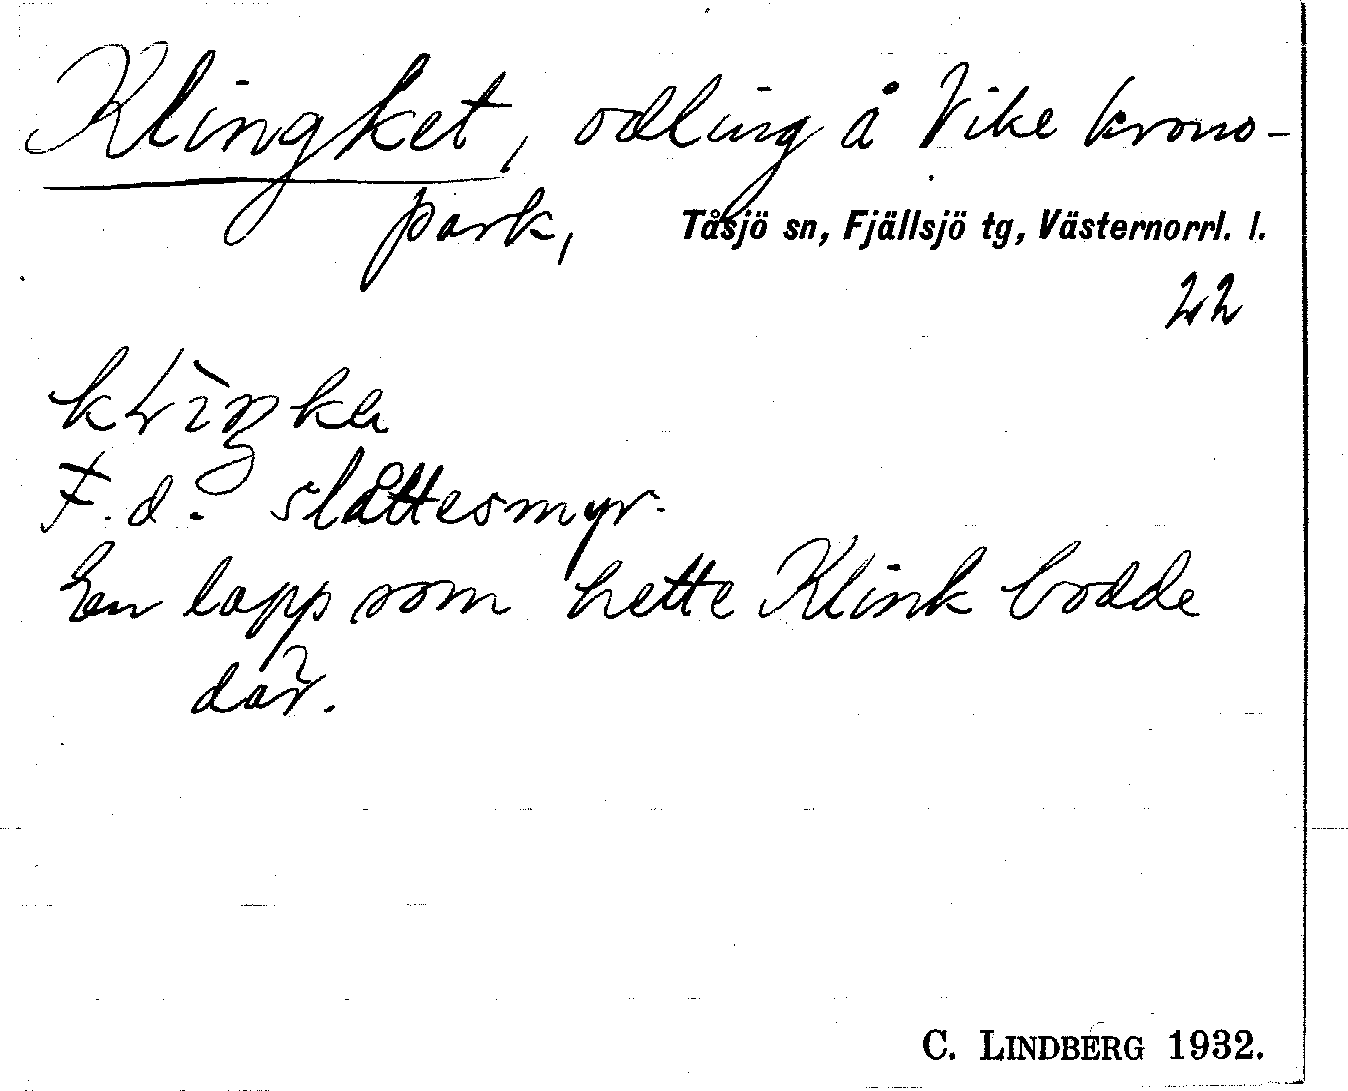 Klingket, odling å Vike krono-
park, Tåsjö sn, Fjällsjö tg, Västernorrl. l.
22
F. d. slåttesmyr.
En lapp som hette Klink bodde
där.
C. LINDBERG 1932.